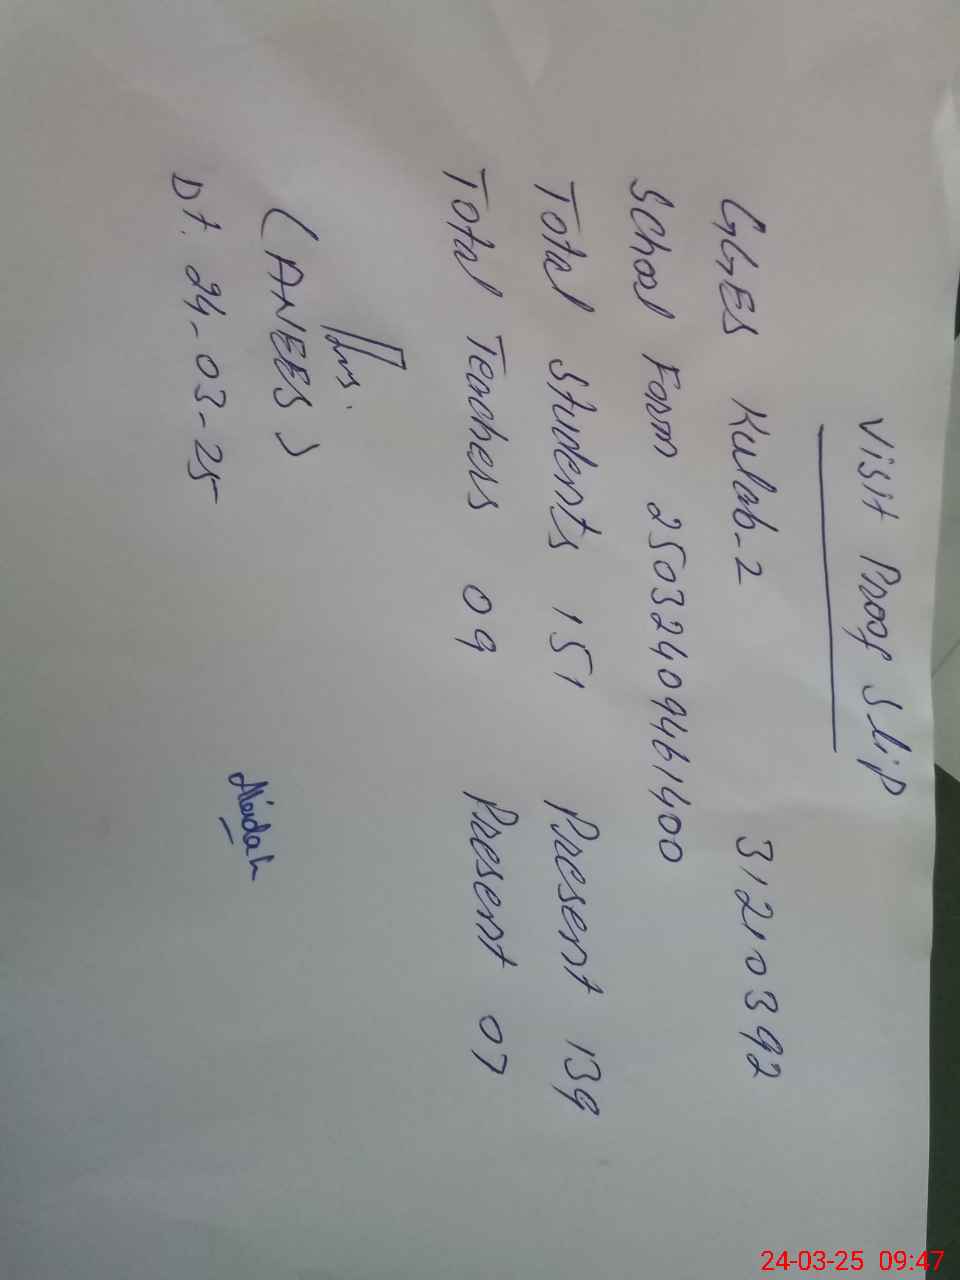 Visit Proof Slip
GGES Kulab-2 31210392
School Form 25032409461400
Total Students 151 Present 139
Total Teachers 09 Present 07
(ANEES)
Dt. 24-03-25
24-03-25 09:47